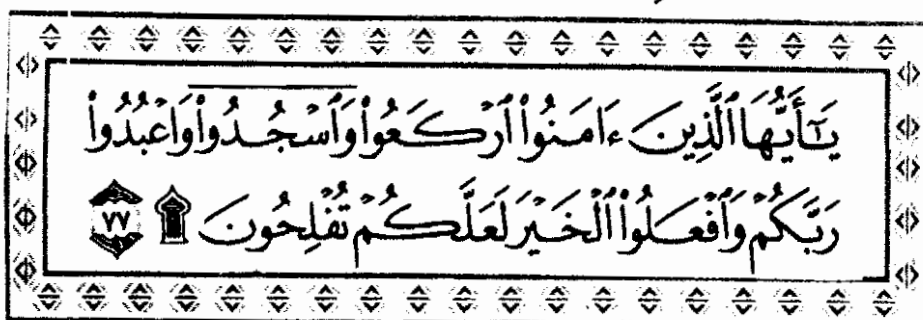 يَٰٓأَيُّهَا ٱلَّذِينَ ءَامَنُوا۟ ٱرْكَعُوا۟ وَٱسْجُدُوا۟ وَٱعْبُدُوا۟
رَبَّكُمْ وَٱفْعَلُوا۟ ٱلْخَيْرَ لَعَلَّكُمْ تُفْلِحُونَ ۩ ٧٧